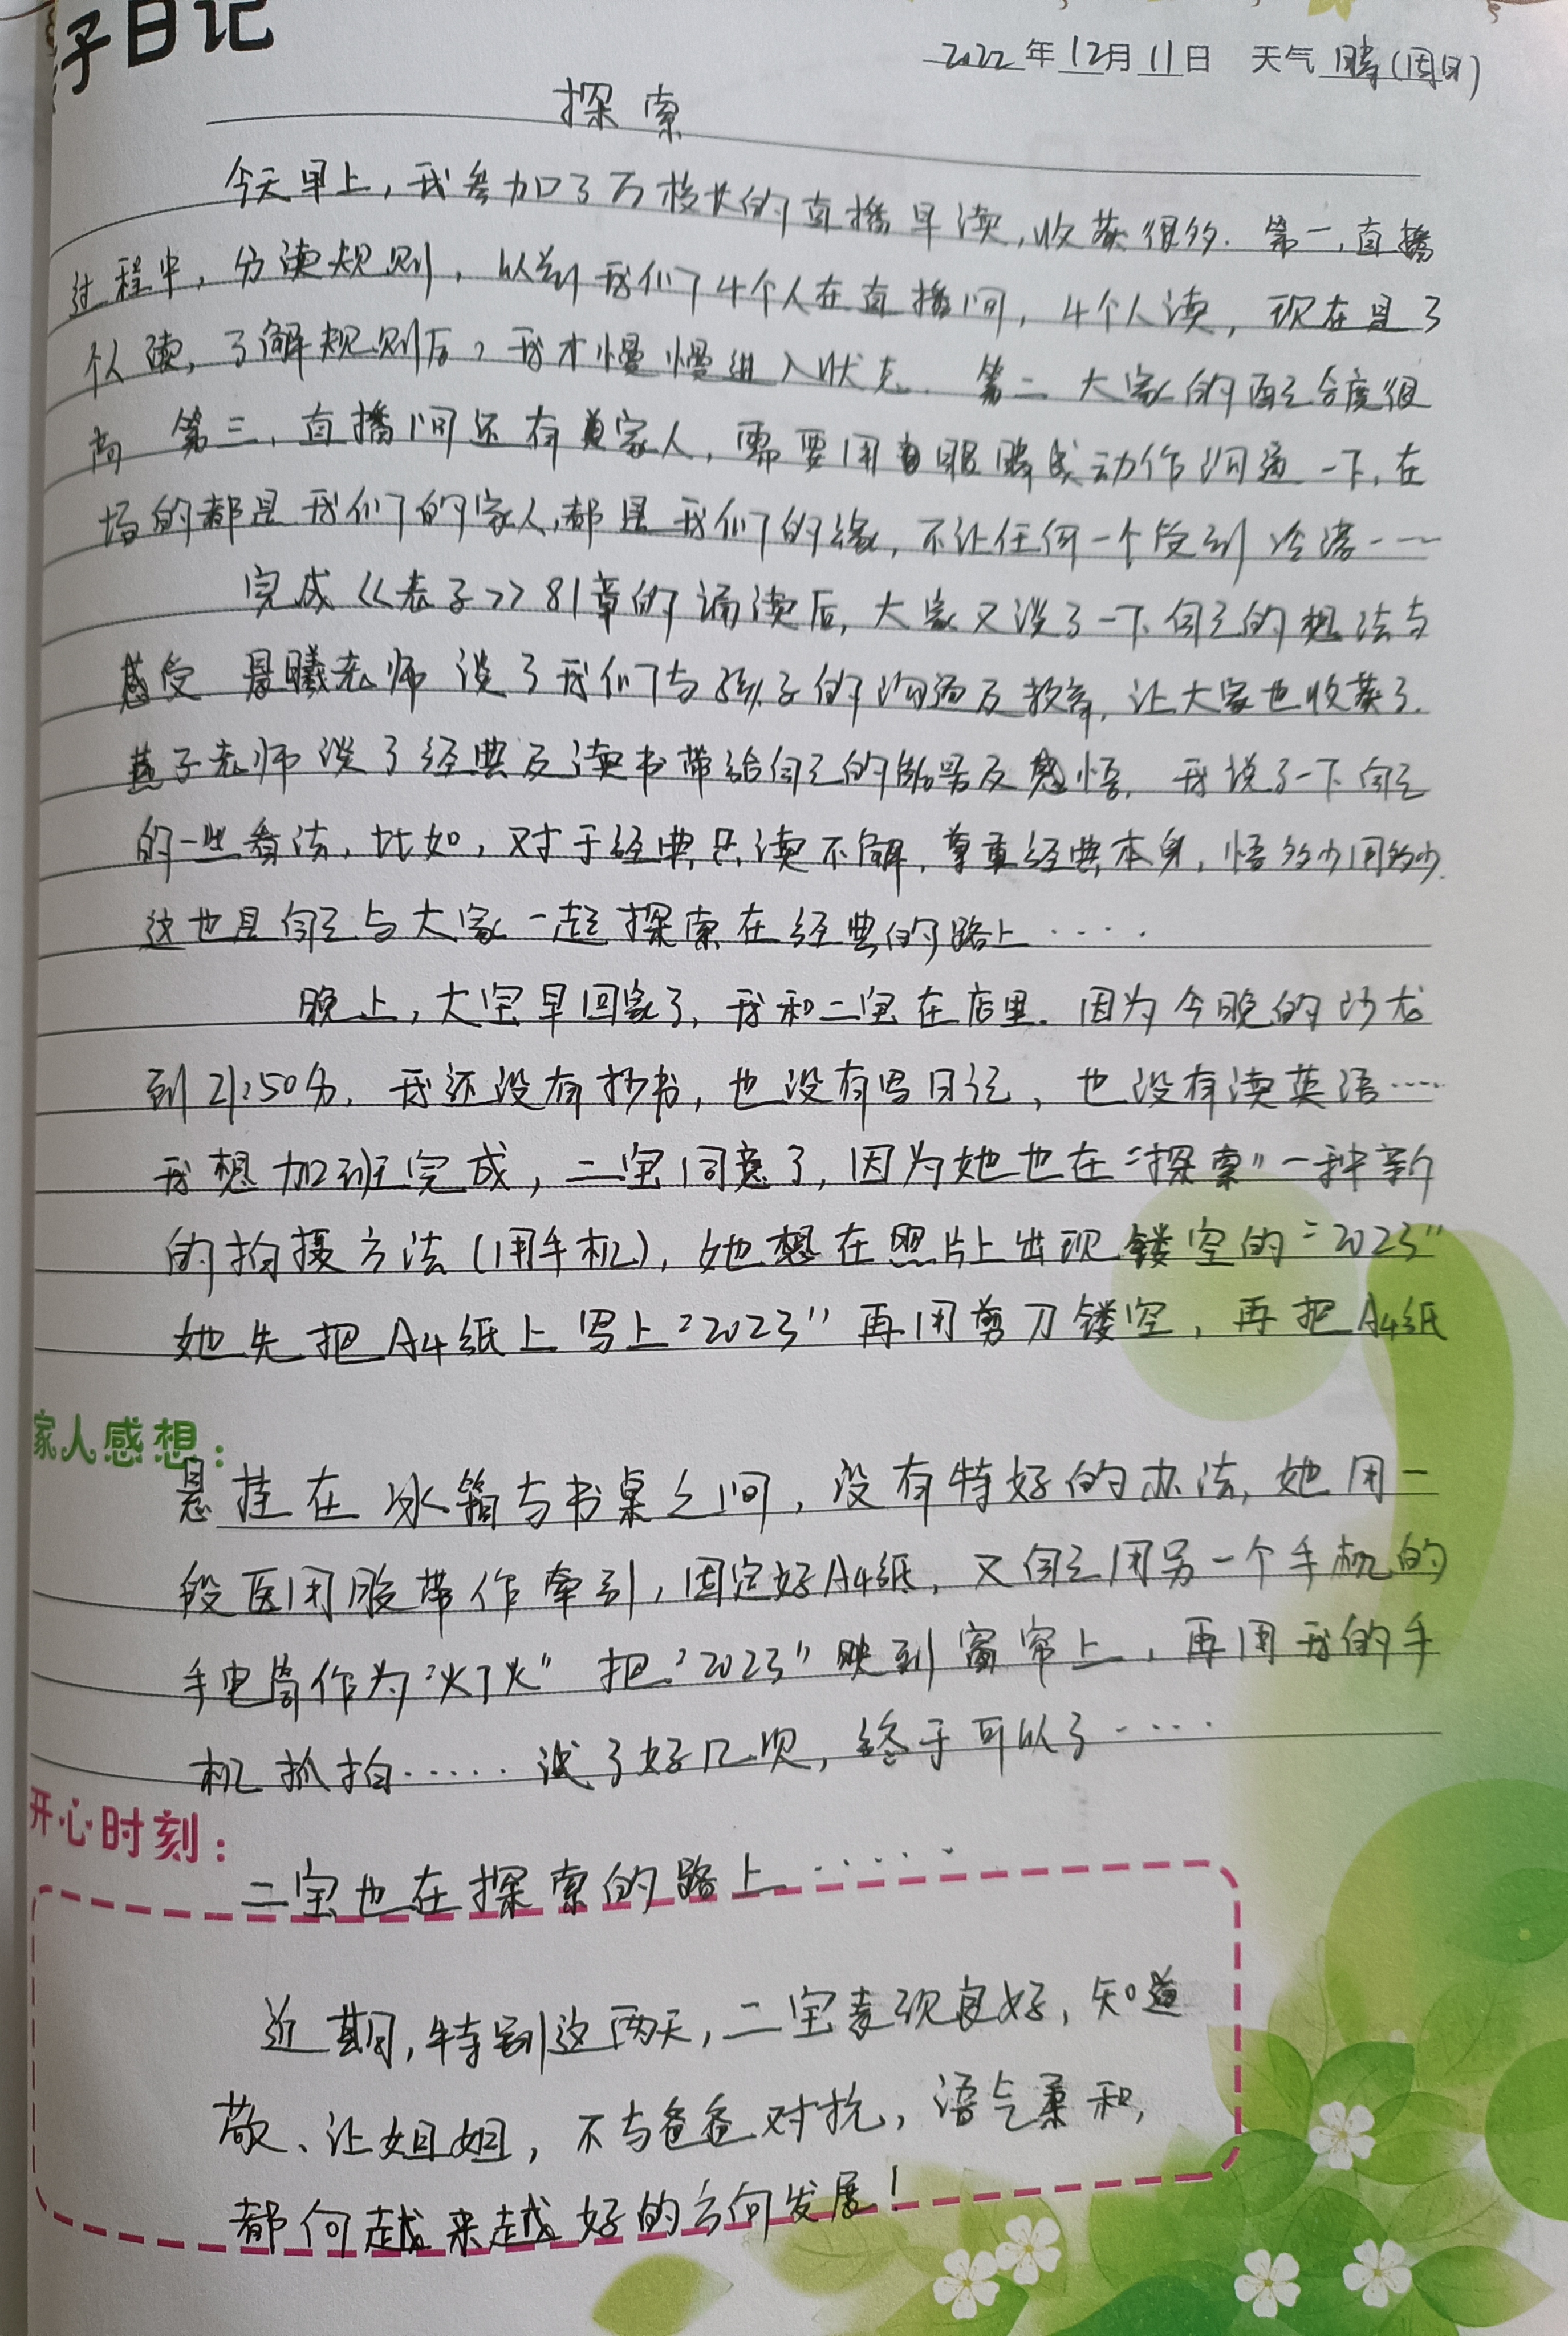 子日记
2022年12月11日 天气 晴(周日)
探索
今天早上,我参加了万校长的直播早读,收获很多.第一,直播
过程中,分读规则,以前我们4个人在直播间,4个人读,现在是3
个人读,了解规则后,我才慢慢进入状态.第二 大家的配合度很
高 第三,直播间还有真家人,需要用眼睛或动作沟通一下,在
场的都是我们的家人,都是我们的缘,不让任何一个受到冷落……
完成《老子》81章的诵读后,大家又谈了一下自己的想法与
感受 晨曦老师谈了我们与孩子的沟通及教育,让大家也收获了.
燕子老师谈了经典及读书带给自己的能量及感悟.我说了一下自己
的一些看法,比如,对于经典只读不解,尊重经典本身,悟多少用多少.
这也是自己与大家一起探索在经典的路上……
晚上,大宝早回家了,我和二宝在店里.因为今晚的沙龙
到21:50分,我还没有抄书,也没有写日记,也没有读英语……
我想加班完成,二宝同意了,因为她也在“探索”一种新
的拍摄方法(用手机),她想在照片上出现镂空的“2023”
她先把A4纸上写上“2023”再用剪刀镂空,再把A4纸
家人感想:
悬挂在冰箱与书桌之间,没有特好的办法,她用一
段医用胶带作牵引,固定好A4纸,又自己用另一个手机的
手电筒作为“灯火” 把“2023”映到窗帘上,再用我的手
机抓拍……试了好几次,终于可以了……
开心时刻:
二宝也在探索的路上……
近期,特别这两天,二宝表现良好,知道
敬、让姐姐,不与爸爸对抗,语气柔和,
都向越来越好的方向发展!